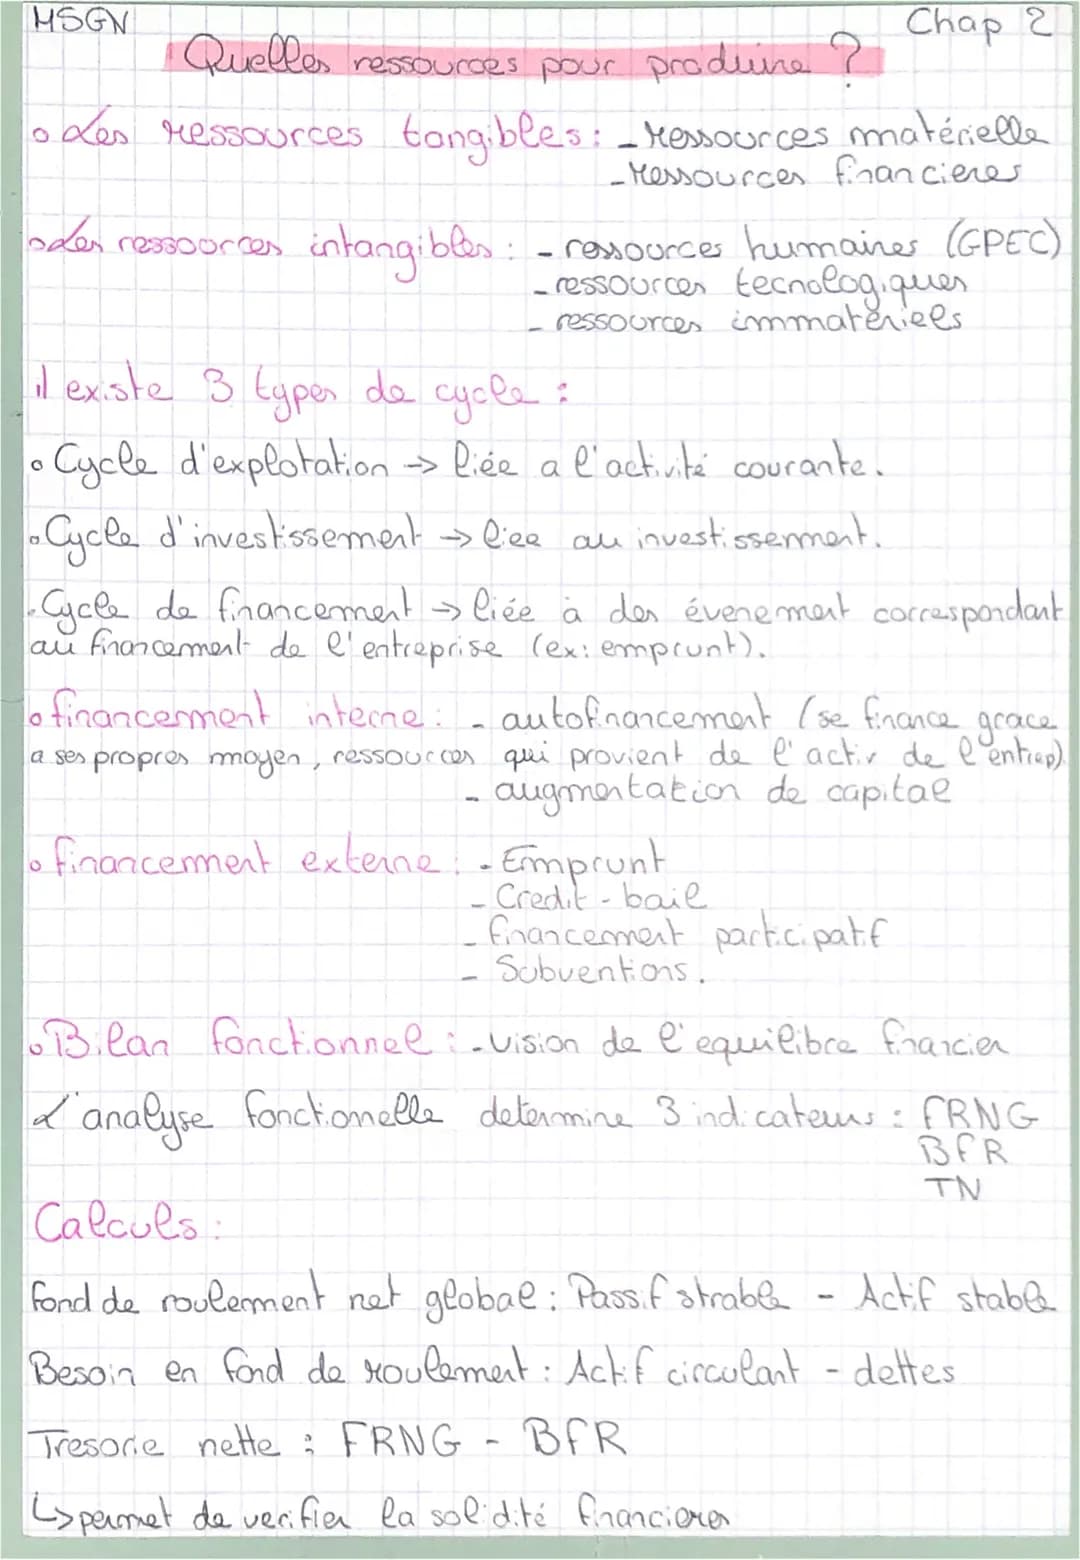 MSGN
Chap 2
Quelles ressources pour produire ?
o Les ressources tangibles : - ressources matérielle
- ressources financieres
o des ressources intangibles : - ressources humaines (GPEC)
- ressources tecnologiques
- ressources immatériels
il existe 3 types de cycle :
o Cycle d'explotation -> liée a l'activité courante.
o Cycle d'investissement -> liee au investissement.
- Cycle de financement -> liée à des évenement correspondant
au financement de l'entreprise (ex: emprunt).
o financement interne : - autofinancement (se finance grace
a ses propres moyen, ressources qui provient de l'activ de l'entrep).
- augmentation de capital
o financement externe : - Emprunt
- Credit - bail
- financement participatif
- Subventions.
o Bilan fonctionnel : - vision de l'equilibre financier
L'analyse fonctionnelle determine 3 indicateurs : FRNG
BFR
TN
Calculs :
fond de roulement net global : Passif strable - Actif stable
Besoin en fond de roulement : Actif circulant - dettes
Tresorie nette : FRNG - BFR
↳ permet de verifier la solidité financieres